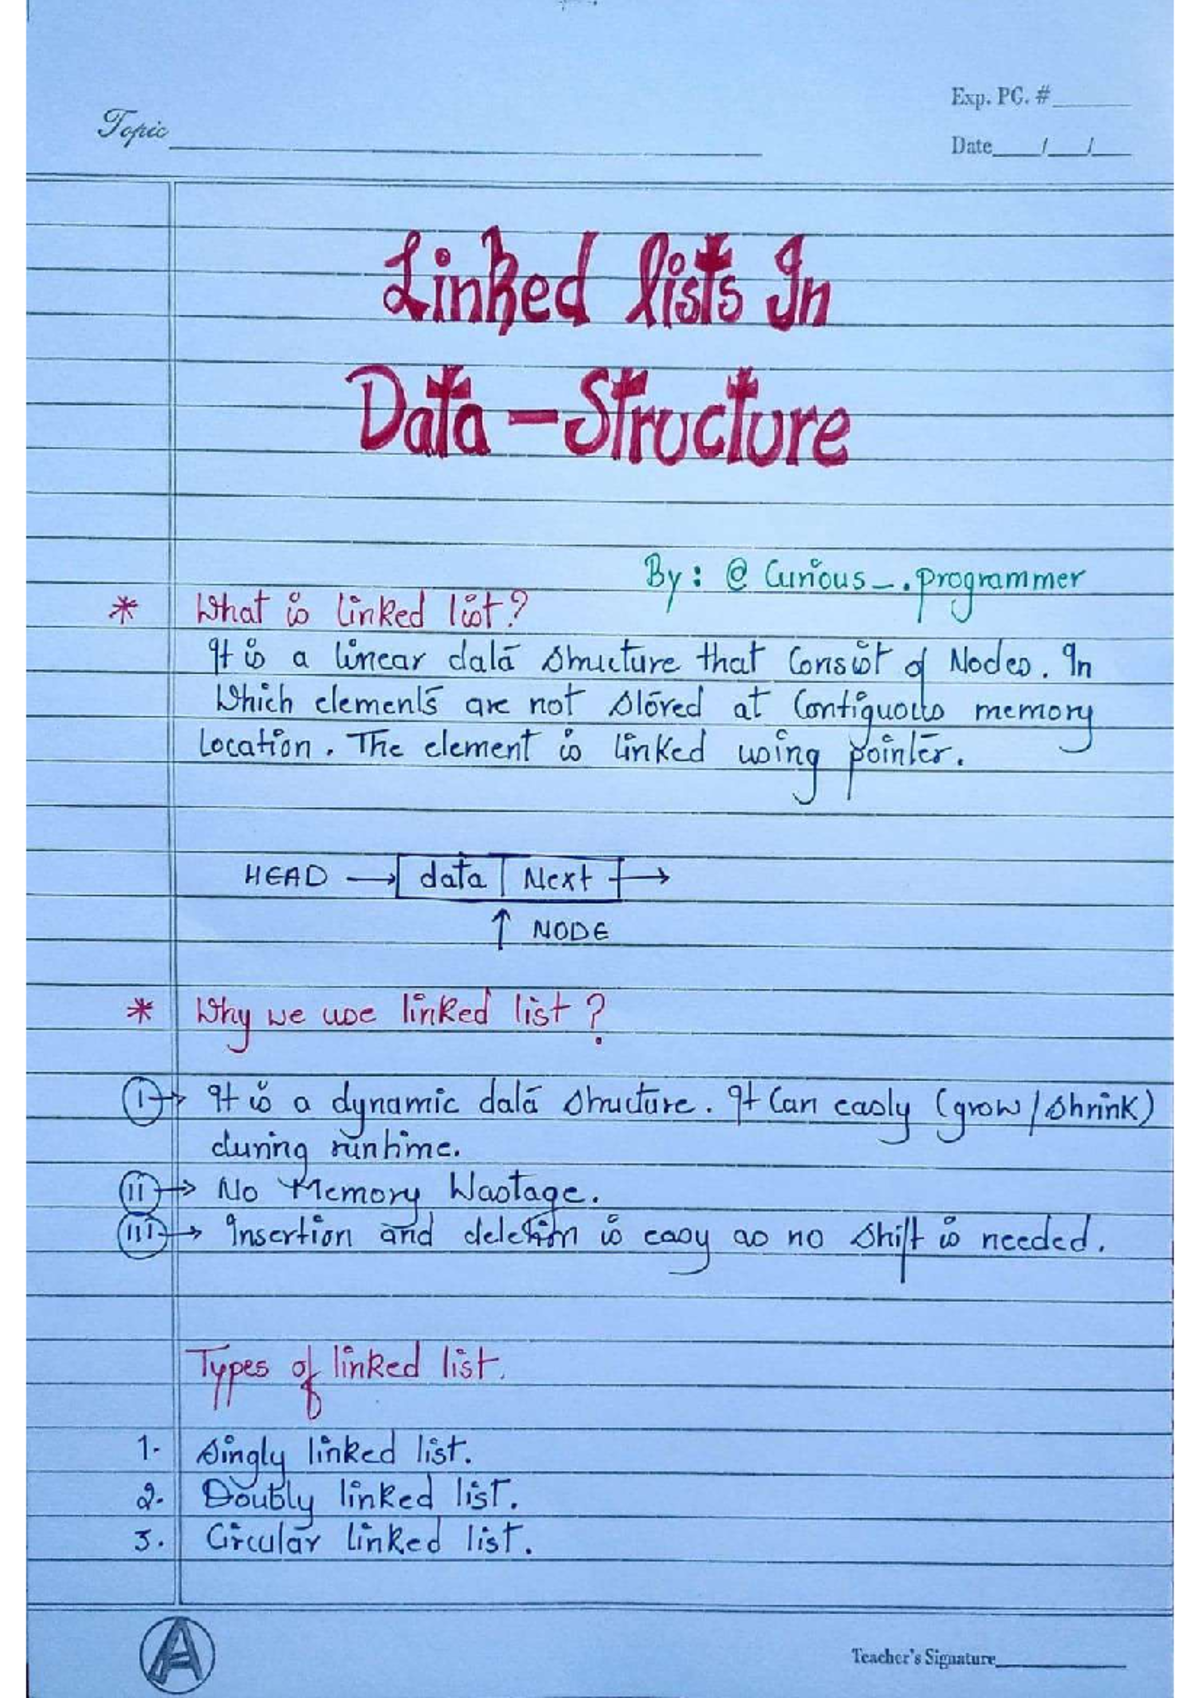 Exp. PG. #
Topic
Date / /
Linked lists In
Data - Structure
By: @ Curious_.programmer
* What is linked list?
It is a linear data structure that Consist of Nodes. In
Which elements are not stored at Contiguous memory
location. The element is linked using pointer.
HEAD → data | Next →
↑ NODE
* Why we use linked list?
(i)→ It is a dynamic data structure. It Can easly (grow/shrink)
during runtime.
(ii)→ No Memory Wastage.
(iii)→ Insertion and deletion is easy as no shift is needed.
Types of linked list.
1. Singly linked list.
2. Doubly linked list.
3. Circular linked list.
A
Teacher's Signature